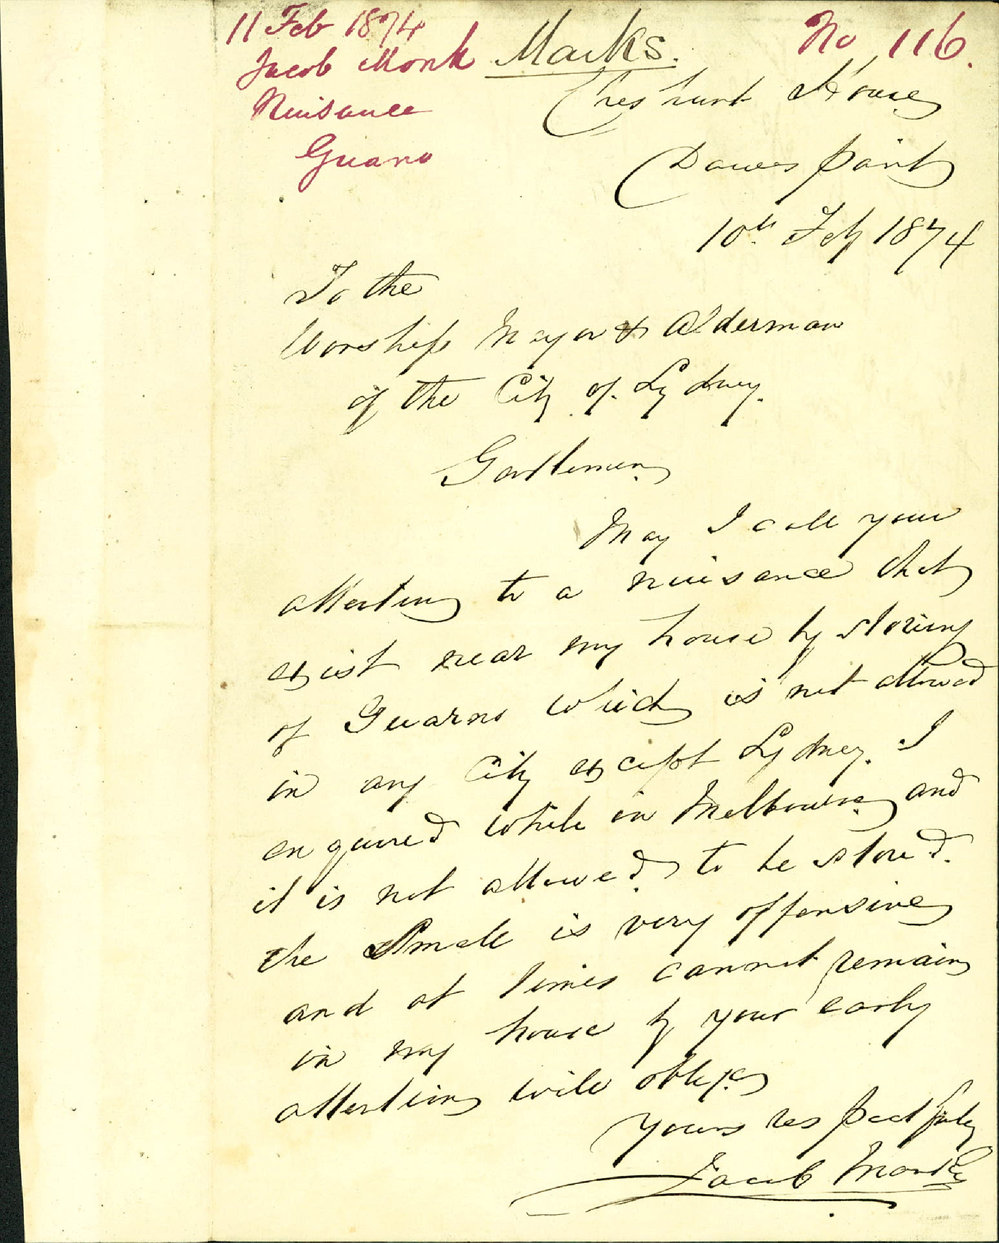 11 Feb 1874
Jacob Monk
Nuisance
Guano
Marks.
No 116.
Cheshunt House
Dawes point
10th Feby 1874
To the
Worship Mayor & Alderman
of the City of Sydney.
Gentlemen
May I call your
attention to a nuisance that
exist near my house by storing
of Guarno which is not allowed
in any City except Sydney. I
enquired while in Melbourne and
it is not allowed to be stored.
the Smell is very offensive
and at times cannot remain
in my house by your early
attention will oblige
Yours respectfuly
Jacob Marks